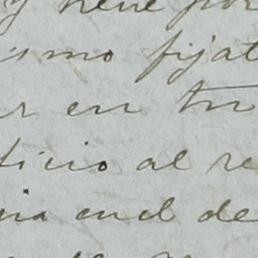 y tiene por
ismo fijat
r en tu
ticio al re
ia en el de